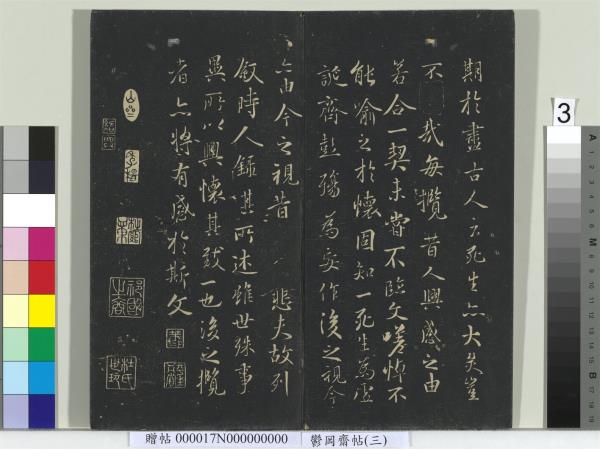 期於盡古人云死生亦大矣豈
不哉每攬昔人興感之由
若合一契未嘗不臨文嗟悼不
能喻之於懷固知一死生為虛
誕齊彭殤為妄作後之視今
亦由今之視昔悲夫故列
敘時人錄其所述雖世殊事
異所以興懷其致一也後之攬
者亦將有感於斯文
贈帖 000017N000000000
鬱岡齋帖(三)
3
A
1
2
3
4
5
6
M
8
9
10
11
12
13
14
15
B
17
18
19